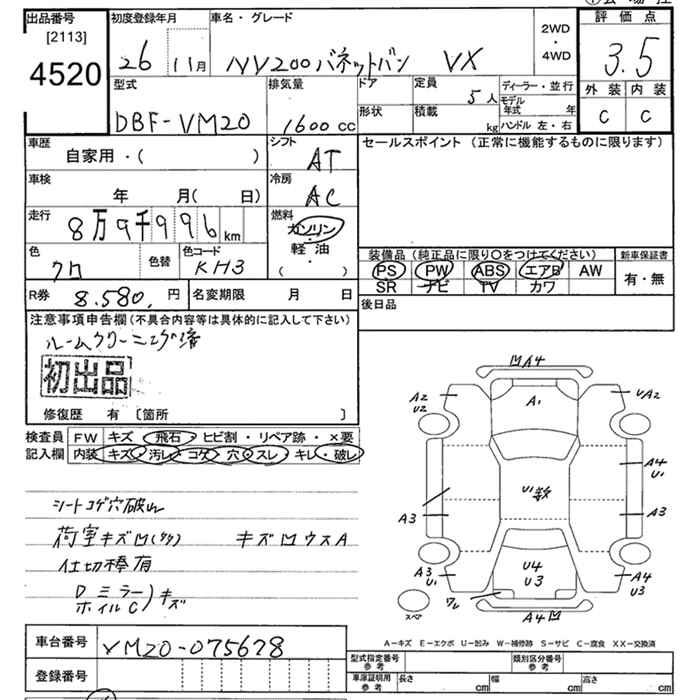 出品番号
[2113]
4520
初度登録年月
26 11月
車名・グレード
NV200バネットバン VX
2WD
・
4WD
評価点
3.5
外装 内装
C C
型式
DBF-VM20
排気量
1600cc
ドア
形状
定員
5人
積載
kg
ディーラー・並行
モデル
年式 年
ハンドル 左・右
車歴
自家用・( )
シフト
AT
セールスポイント (正常に機能するものに限ります)
車検
年 月(日)
冷房
AC
走行
8万9千996km
燃料
ガソリン
・
軽油
・
( )
色
クロ
色替
色コード
KH3
装備品 (純正品に限り○をつけてください)
PS PW ABS エアB AW
SR ナビ TV カワ
新車保証書
有・無
R券 8.580.円
名変期限 月 日
後日品
注意事項申告欄(不具合内容等は具体的に記入して下さい)
ルームクリーニング済
初出品
修復歴 有 〔箇所 〕
検査員
記入欄
FW キズ・飛石・ヒビ割・リペア跡・×要
内装 キズ・汚レ・コゲ・穴・スレ・キレ・破レ
シートコゲ穴破レ
荷室キズ凹(多) キズ凹ウスA
仕切棒有
Dミラー
ホイルC)キズ
凹A4
A2
U2
A1
UA2
U1数
A4
U1
A3
A3
A3
U1
U4
U3
A4
U3
ワレ
スペア
A4凹
A-キズ E-エクボ U-凹み W-補修跡 S-サビ C-腐食 XX-交換済
車台番号 VM20-075678
登録番号
型式指定番号
参考
類別区分番号
参考
車庫証明用
参考
長さ cm
幅 cm
高さ cm